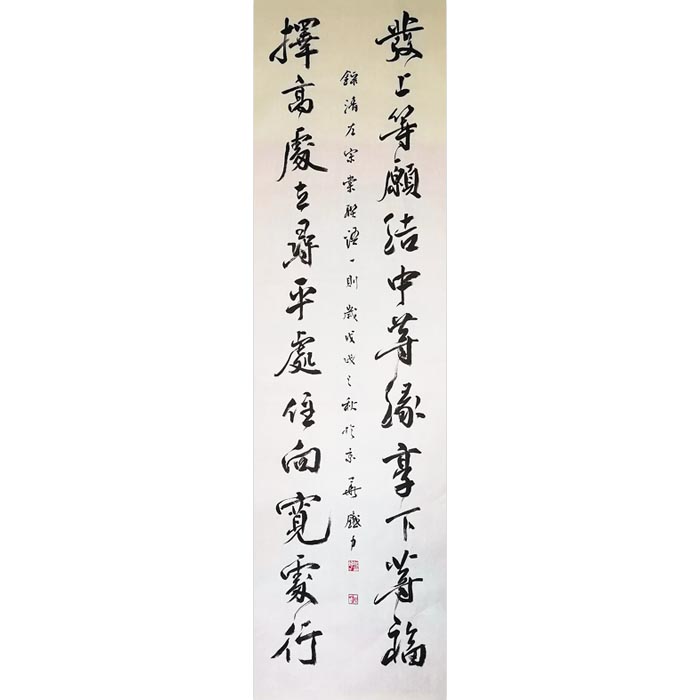 發上等願結中等緣享下等福
擇高處立尋平處住向寬處行
錄清左宗棠聯語一則歲戊戌之秋於京華